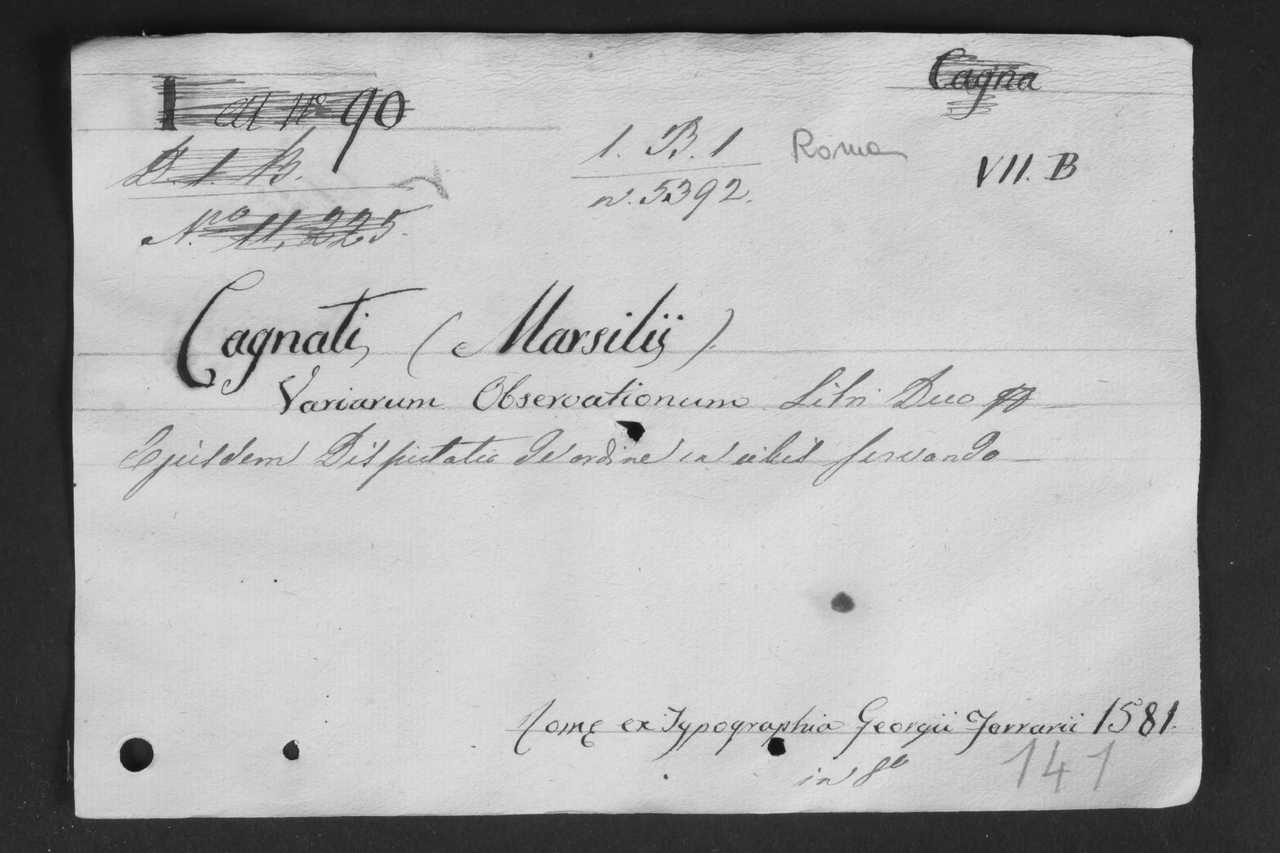 Cagna
I 90
D. 1. B.
N.ro 11,225.
1. B. 1
n. 5392.
Roma
VII. B
Cagnati, (Marsilij)
Variarum Observationum Libri Duo
Ejusdem Disputatio de ordine in cibis servando
Romę ex Typographia Georgii Ferrarii 1581.
in 8º
141